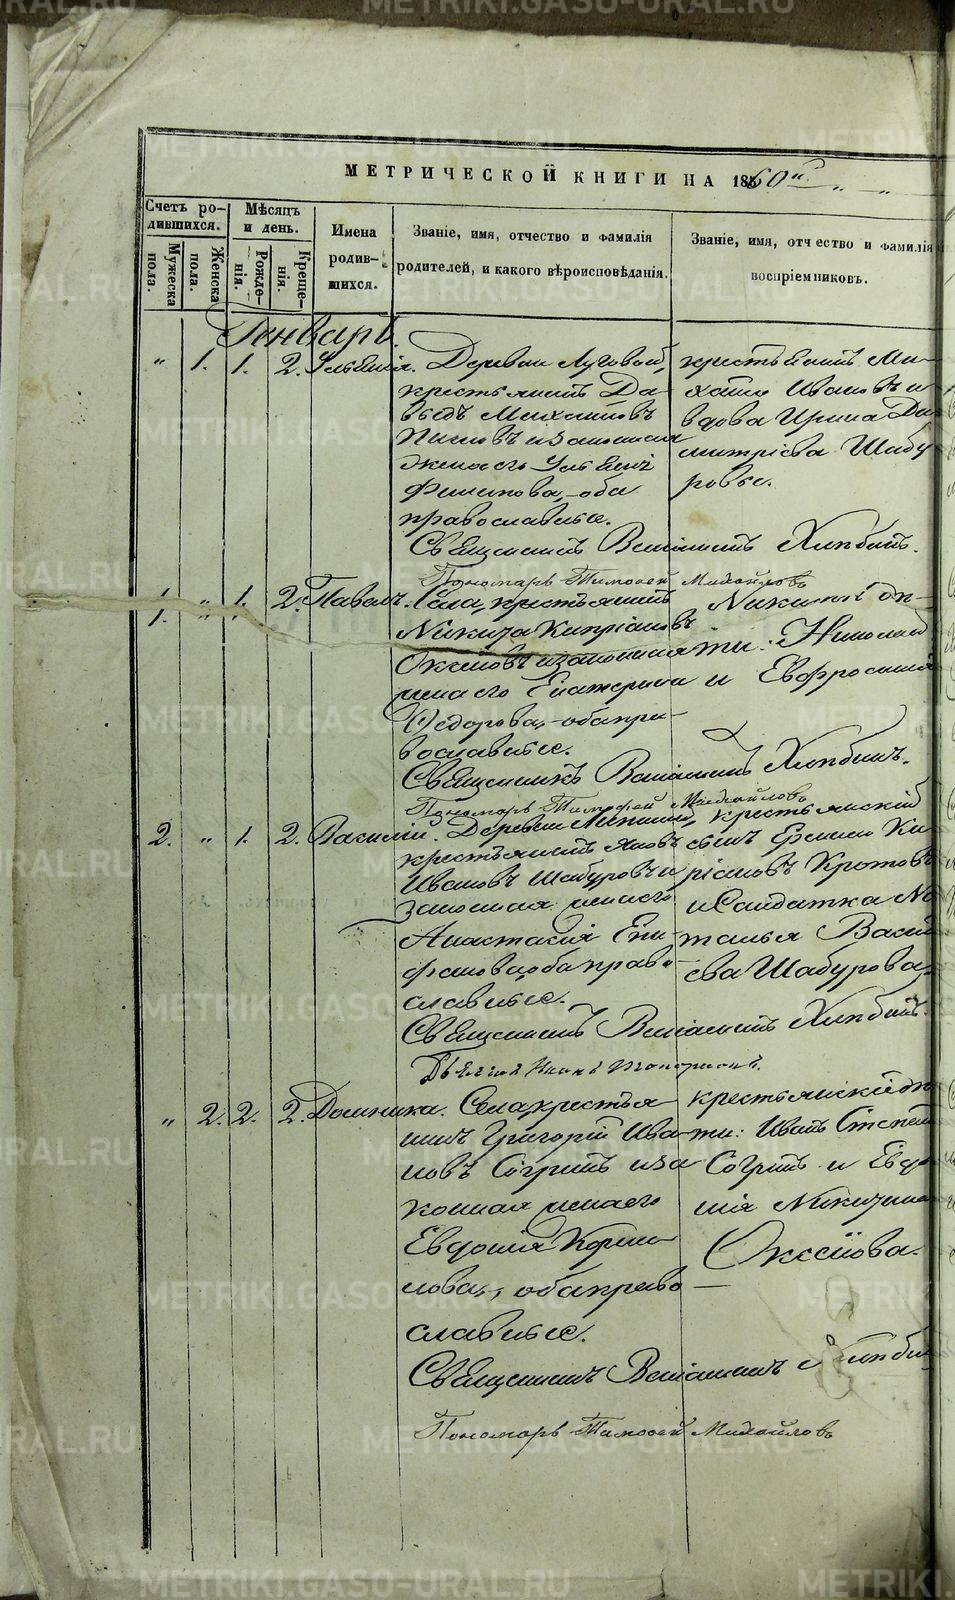 МЕТРИЧЕСКОЙ КНИГИ НА 1860й
Счетъ ро-
дившихся.
Мужеска
пола.
Женска
пола.
Мѣсяцъ
и день.
Рожде-
нія.
Креще-
нія.
Имена
родив-
шихся.
Званіе, имя, отчество и фамилія
родителей, и какого вѣроисповѣданія.
Званіе, имя, отчество и фамилія
воспріемниковъ.
Январь.
" 1. 1. 2. Деревни Луговой,
крестьянинъ Да-
выдъ
и законная
жена его
православные.
Священникъ Веніаминъ Хлѣбинъ.
Пономарь Тимофей Михайловъ
крестьянинъ Ми-
хаилъ Ивановъ и
вдова Ирина Ди-
митріева Шабу
ровы.
1. " 1. 2. Павелъ. Села, крестьянинъ
Никита Кипріановъ
Оксеновъ и законная
жена его Екатерина
Ѳедорова, оба пра-
вославные.
Священникъ Веніаминъ Хлѣбинъ.
Пономарь Тимофей Михайловъ
Никитины дѣ-
ти: Николай
и Евфросинія
2. " 1. 2. Василій. Деревни
крестьянинъ Яковъ
Ивановъ Шабуровъ и
законная жена его
Анастасія Епи-
фанова, оба право
славные.
Священникъ Веніаминъ Хлѣбинъ.
крестьянскій
сынъ Ки-
ріановъ Кротовъ
и солдатка На
талья Васил
ева Шабурова.
" 2. 2. 2. Домника. Села, крестья
нинъ Григорій Ива-
новъ Согринъ и за
конная жена его
Евдокія Корни
лова, оба право
славные.
Священникъ Веніаминъ Хлѣбин
Пономарь Тимофей Михайловъ
крестьянскій дѣ
ти: Иванъ Степан
Согринъ и Евдо
кія Никитина
Оксенова.
METRIKI.GASO-URAL.RU